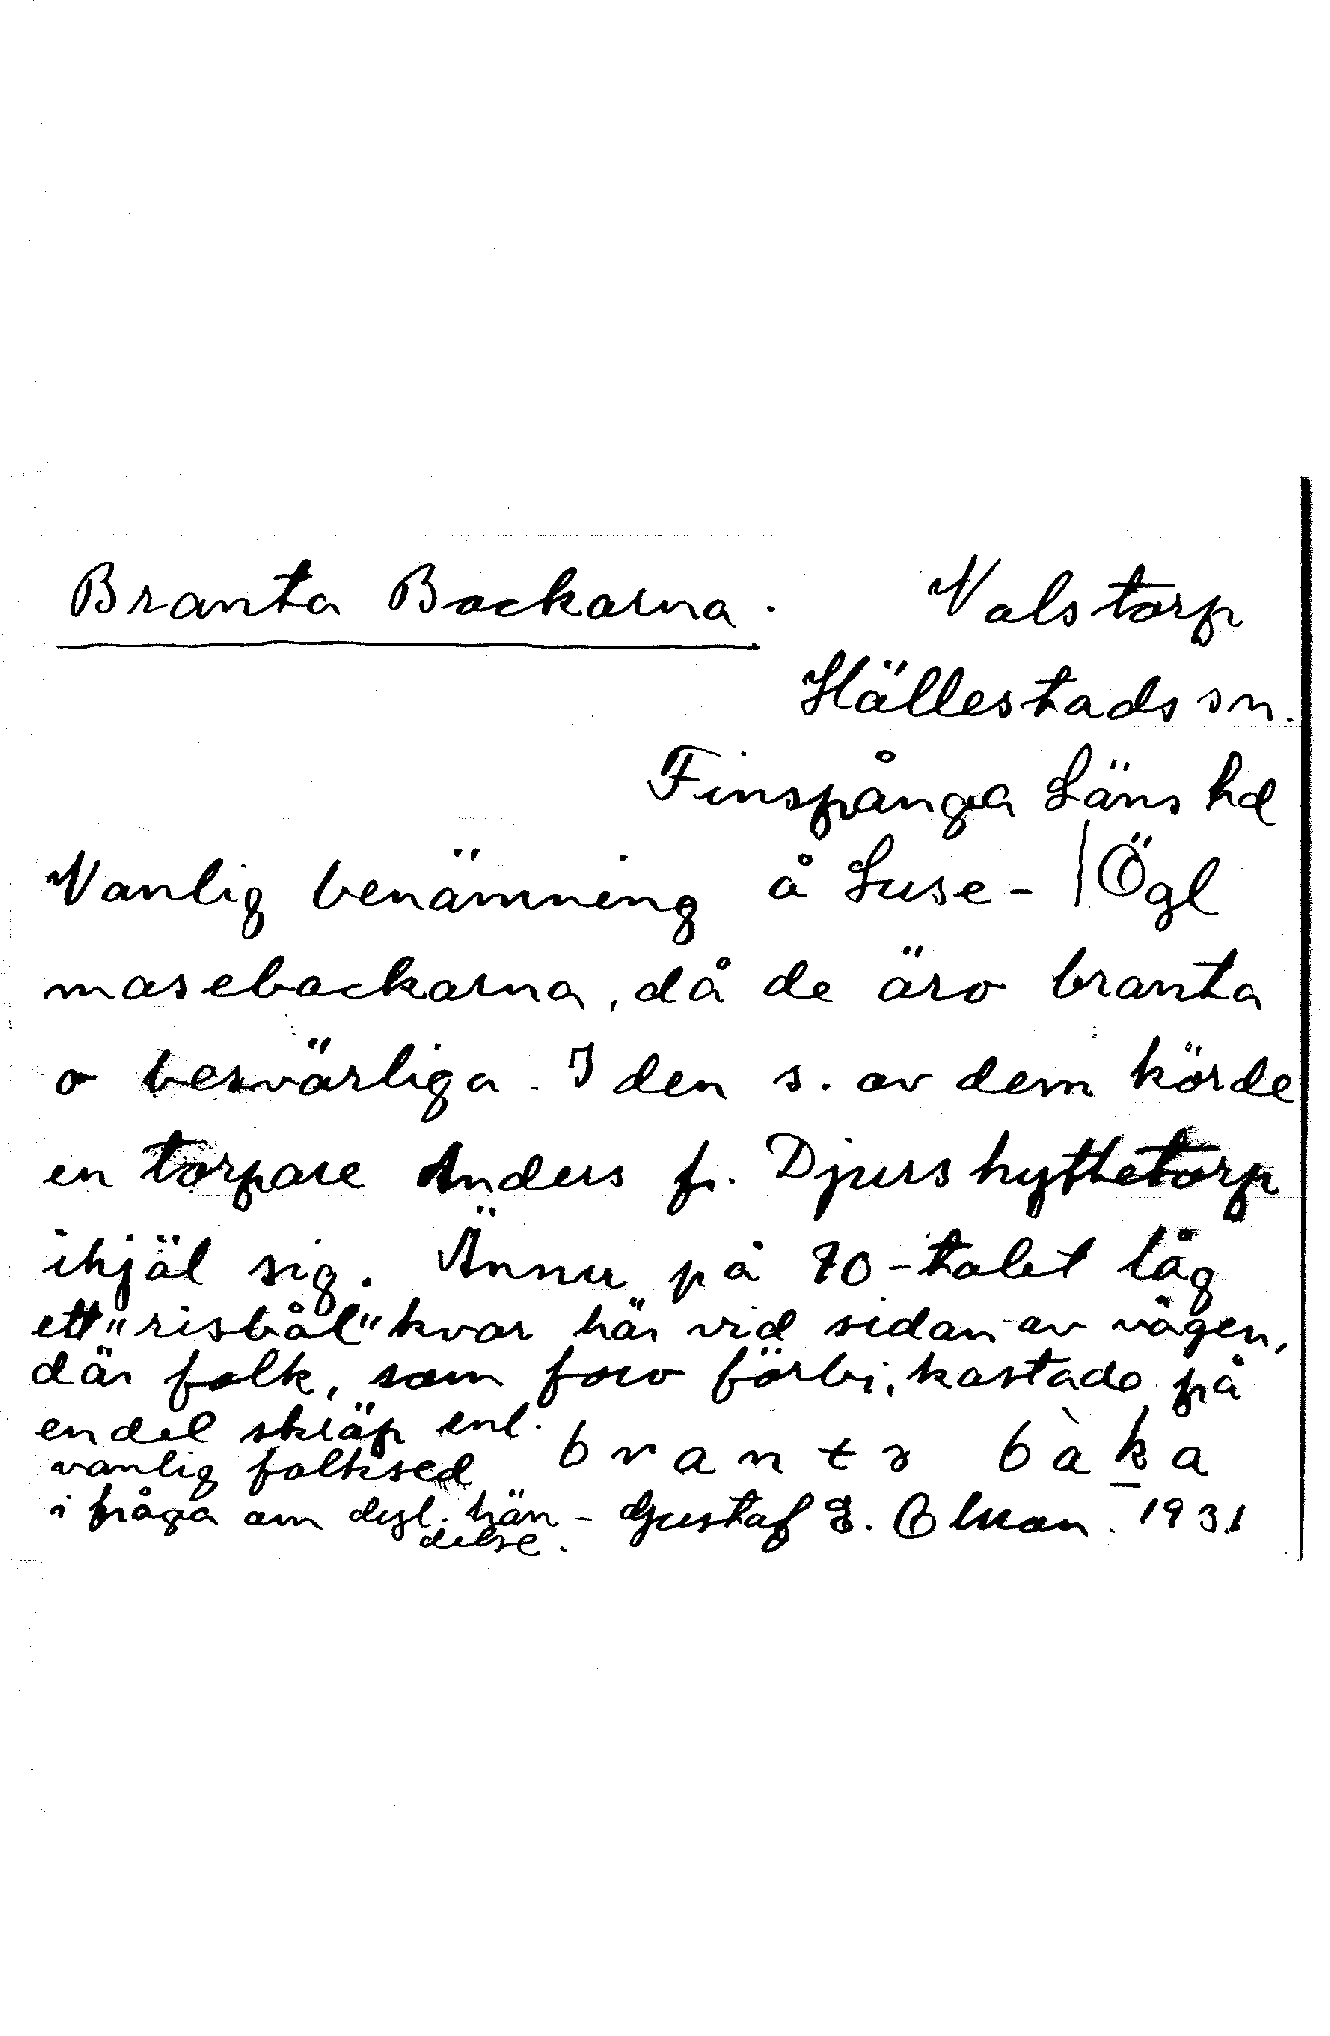 Branta Backarna. Valstorp
Hällestads sn.
Finspånga Läns hd
Vanlig benämning å Luse- / Ögl
masebackarna, då de äro branta
o besvärliga. I den s. av dem körde
en torpare Anders fr. Djurshyttetorp
ihjäl sig. Ännu på 70-talet låg
ett "risbål" kvar här vid sidan av vägen,
där folk, som foro förbi, kastade på
en del skräp enl.
vanlig folksed
brantɜ bàka
i fråga om dyl. hän-
delse.
Gustaf E. Olsson. 1931